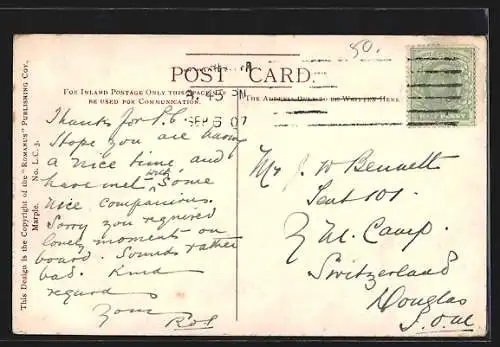 50.
POST CARD.
FOR INLAND POSTAGE ONLY THIS SPACE MAY
BE USED FOR COMMUNICATION.
THE ADDRESS ONLY TO BE WRITTEN HERE.
9.45 PM
SEP 6 07
HALFPENNY
This Design is the Copyright of the "ROMANUS" PUBLISHING COY.
Marple. No. L.C. 3.
Thanks for P.C.
Hope you are having
a nice time and
have met with some
nice companions.
Sorry you
lonely moments on
board. Sounds rather
bad. Kind
regards
Mr J. W Bennett
Tent 101.
Y M. Camp.
Switzerland
Douglas
I. O. M